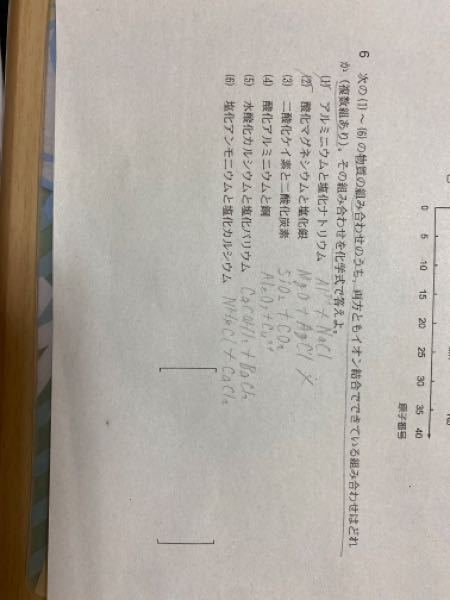 0 5 10 15 20 25 30 35 40
原子番号
6 次の(1)~(6)の物質の組み合わせのうち,両方ともイオン結合でできている組み合わせはどれ
か(複数組あり)。その組み合わせを化学式で答えよ。
(1) アルミニウムと塩化ナトリウム + NaCl
(2) 酸化マグネシウムと塩化銀 MgO + AgCl
(3) 二酸化ケイ素と二酸化炭素 SiO₂ + CO₂
(4) 酸化アルミニウムと銅 Al₂O₃ + Cu²⁺
(5) 水酸化カルシウムと塩化バリウム Ca(OH)₂ + BaCl₂
(6) 塩化アンモニウムと塩化カルシウム + CaCl₂